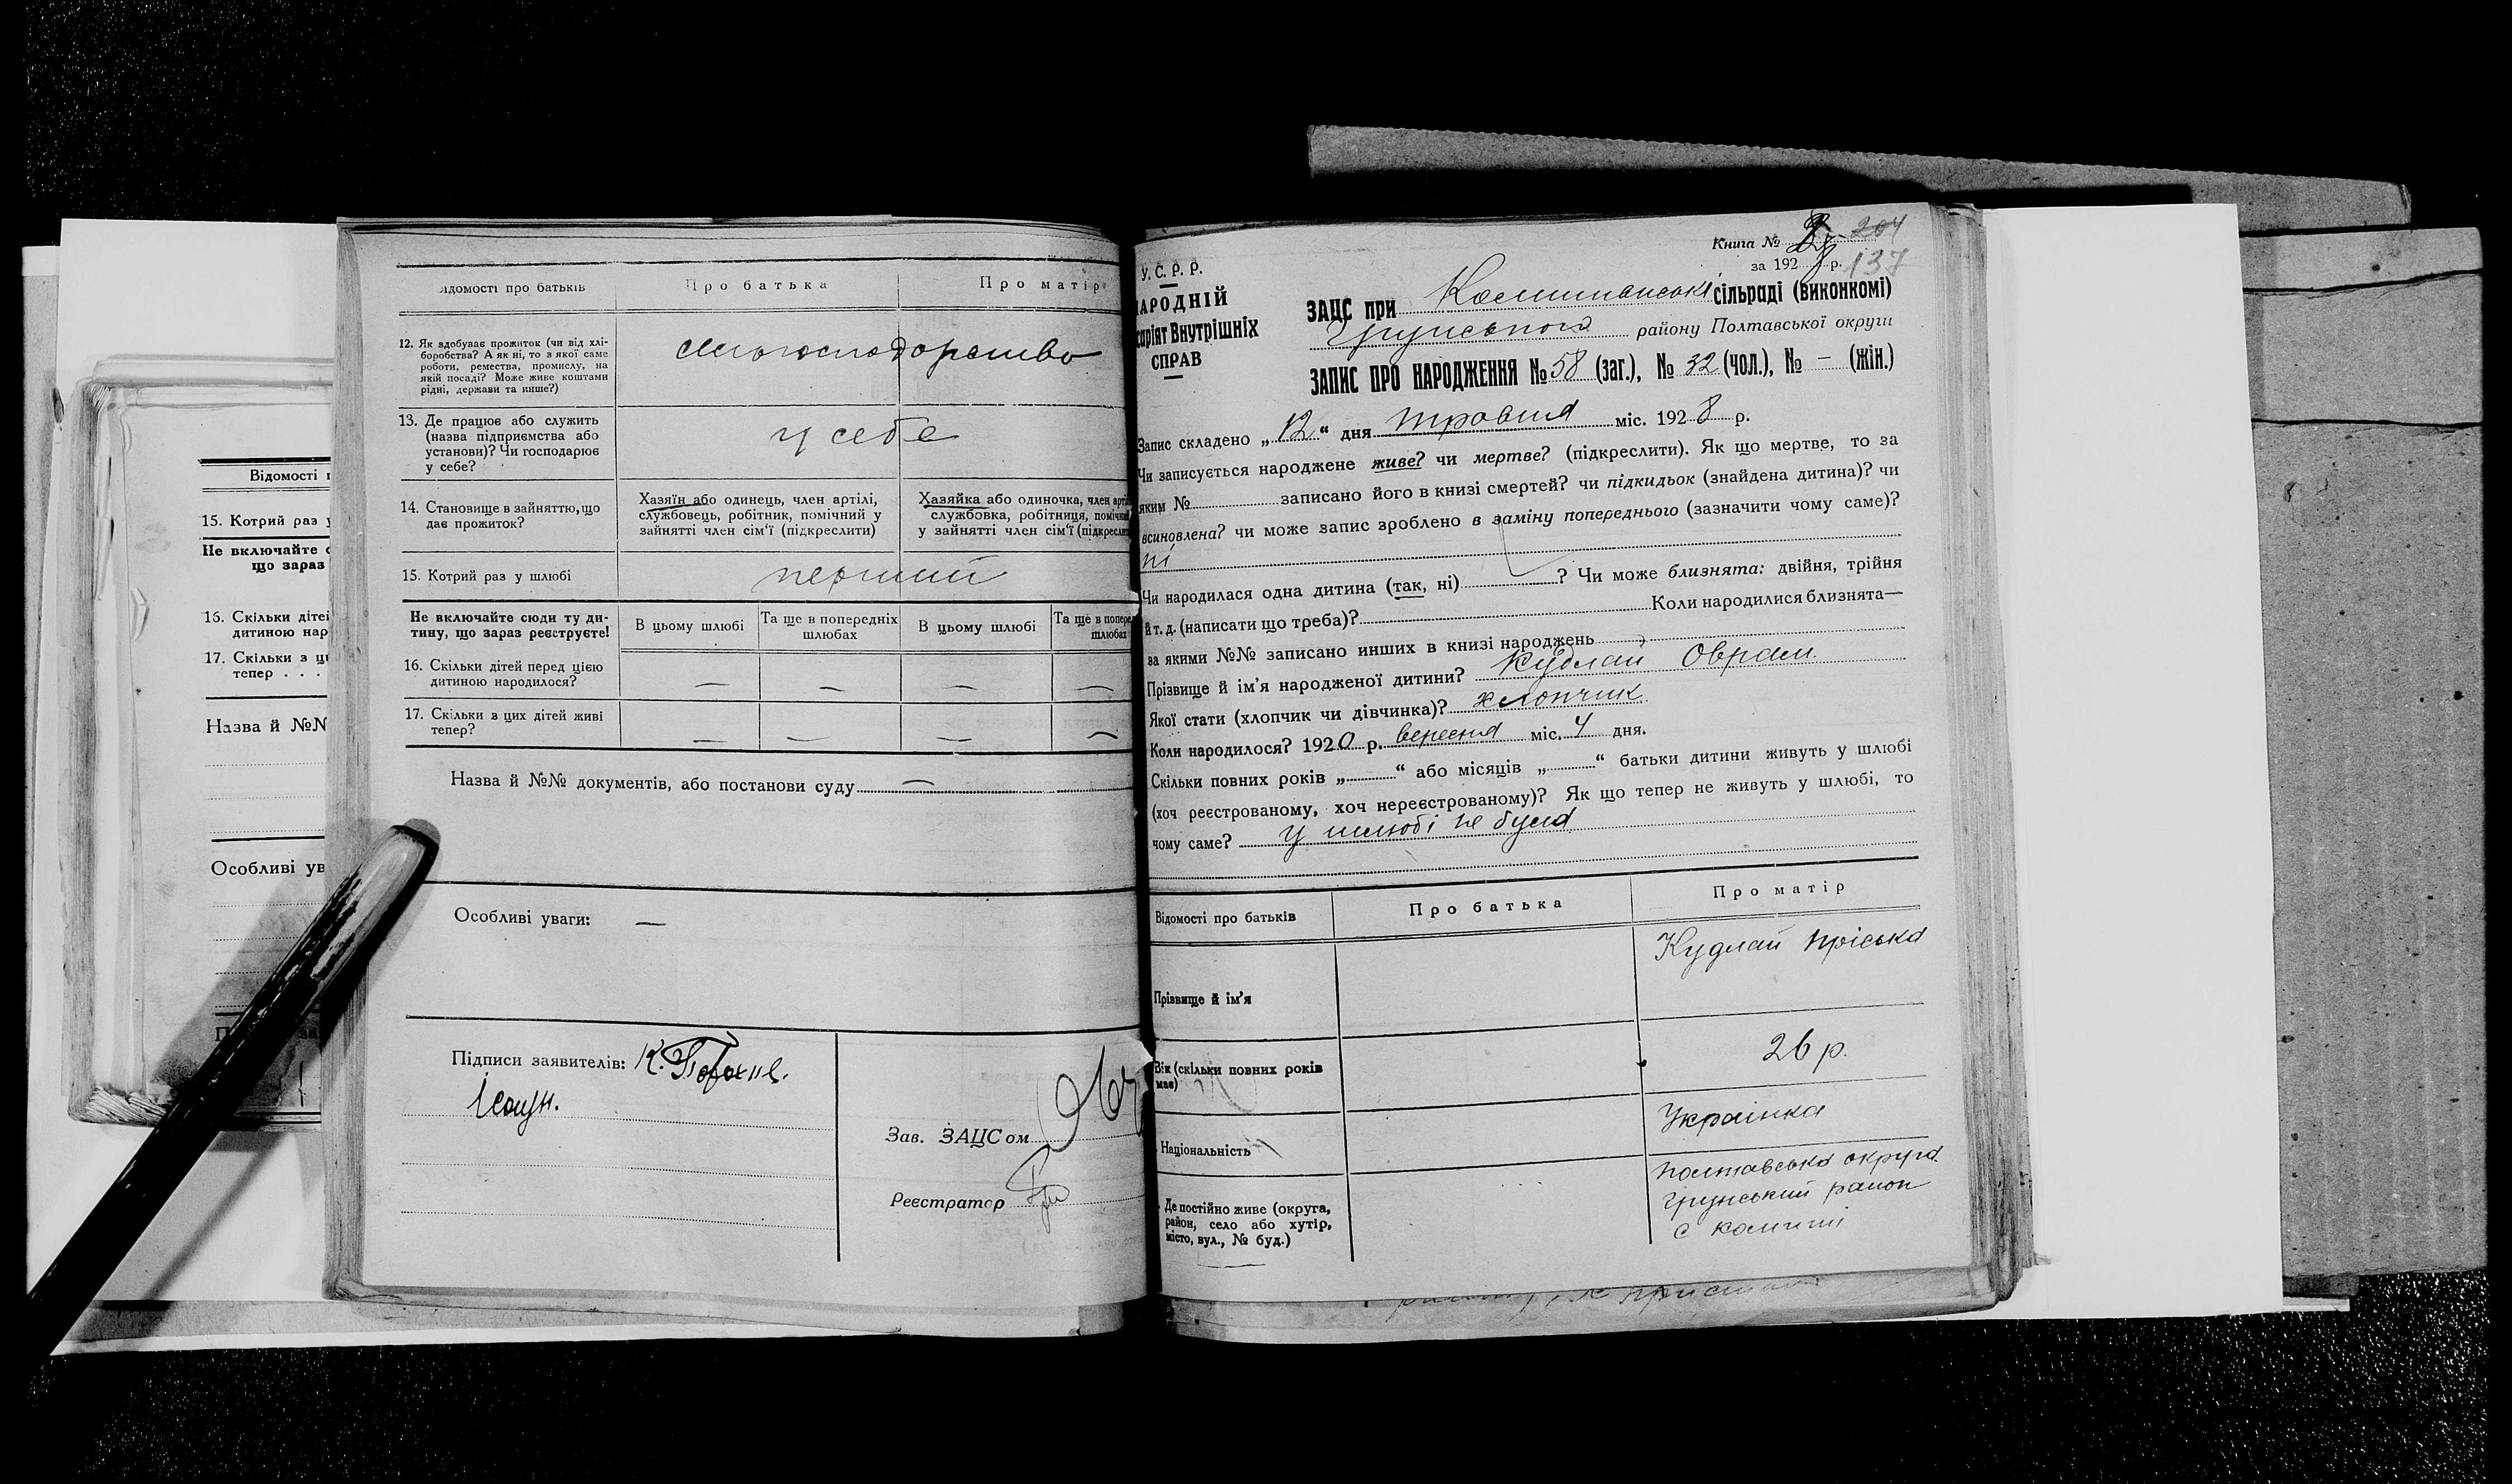 Відомості
15. Котрий раз у
Не включайте
що зараз
16. Скільки діте
дитиною нар
17. Скільки з ц
тепер . . .
Назва й №№
Особливі ув
ідомості про батьків
Про батька
Про матір
12. Як здобуває прожиток (чи від хлі-
боробства? А як ні, то з якої саме
роботи, ремества, промислу, на
якій посаді? Може живе коштами
рідні, держави та инше?)
сільгосподарство
13. Де працює або служить
(назва підприємства або
установи)? Чи господарює
у себе?
у себе
14. Становище в зайняттю, що
дає прожиток?
Хазяїн або одинець, член артілі,
службовець, робітник, помічний у
зайнятті член сім'ї (підкреслити)
Хазяйка або одиночка, член арті
службовка, робітниця, помічни
у зайнятті член сім'ї (підкресли
15. Котрий раз у шлюбі
перший
Не включайте сюди ту ди-
тину, що зараз реєструєте!
В цьому шлюбі
Та ще в попередніх
шлюбах
В цьому шлюбі
Та ще в попере
шлюбах
16. Скільки дітей перед цією
дитиною народилося?
— — — —
17. Скільки з цих дітей живі
тепер?
— — — —
Назва й №№ документів, або постанови суду —
Особливі уваги: —
Підписи заявителів: К.
Зав. ЗАЦСом
Реєстратор
Книга № 204
за 192 р. 137
У. С. Р. Р.
АРОДНІЙ
саріят Внутрішніх
СПРАВ
ЗАЦС при сільраді (виконкомі)
Грунського району Полтавської округи
ЗАПИС ПРО НАРОДЖЕННЯ № 58 (заг.), № 32 (чол.), № — (жін.)
Запис складено „12" дня травня міс. 1928 р.
Чи записується народжене живе? чи мертве? (підкреслити). Як що мертве, то за
яким № записано його в книзі смертей? чи підкидьок (знайдена дитина)? чи
всиновлена? чи може запис зроблено в заміну попереднього (зазначити чому саме)?
ні
Чи народилася одна дитина (так, ні) ? Чи може близнята: двійня, трійня
й т. д. (написати що треба)? Коли народилися близнята—
за якими №№ записано инших в книзі народжень
Прізвище й ім'я народженої дитини? Кудлай Оврам
Якої стати (хлопчик чи дівчинка)? хлопчик
Коли народилось? 1920 р. вересня міс. 4 дня.
Скільки повних років „ " або місяців „ " батьки дитини живуть у шлюбі
(хоч реєстрованому, хоч нереєстрованому)? Як що тепер не живуть у шлюбі, то
чому саме? у шлюбі не була
Відомості про батьків
Про батька
Про матір
Прізвище й ім'я
Кудлай Пріська
Вік (скільки повних років
має)
26 р.
Національність
Українка
Де постійно живе (округа,
район, село або хутір,
місто, вул., № буд.)
Полтавська округа
Грунський район
с